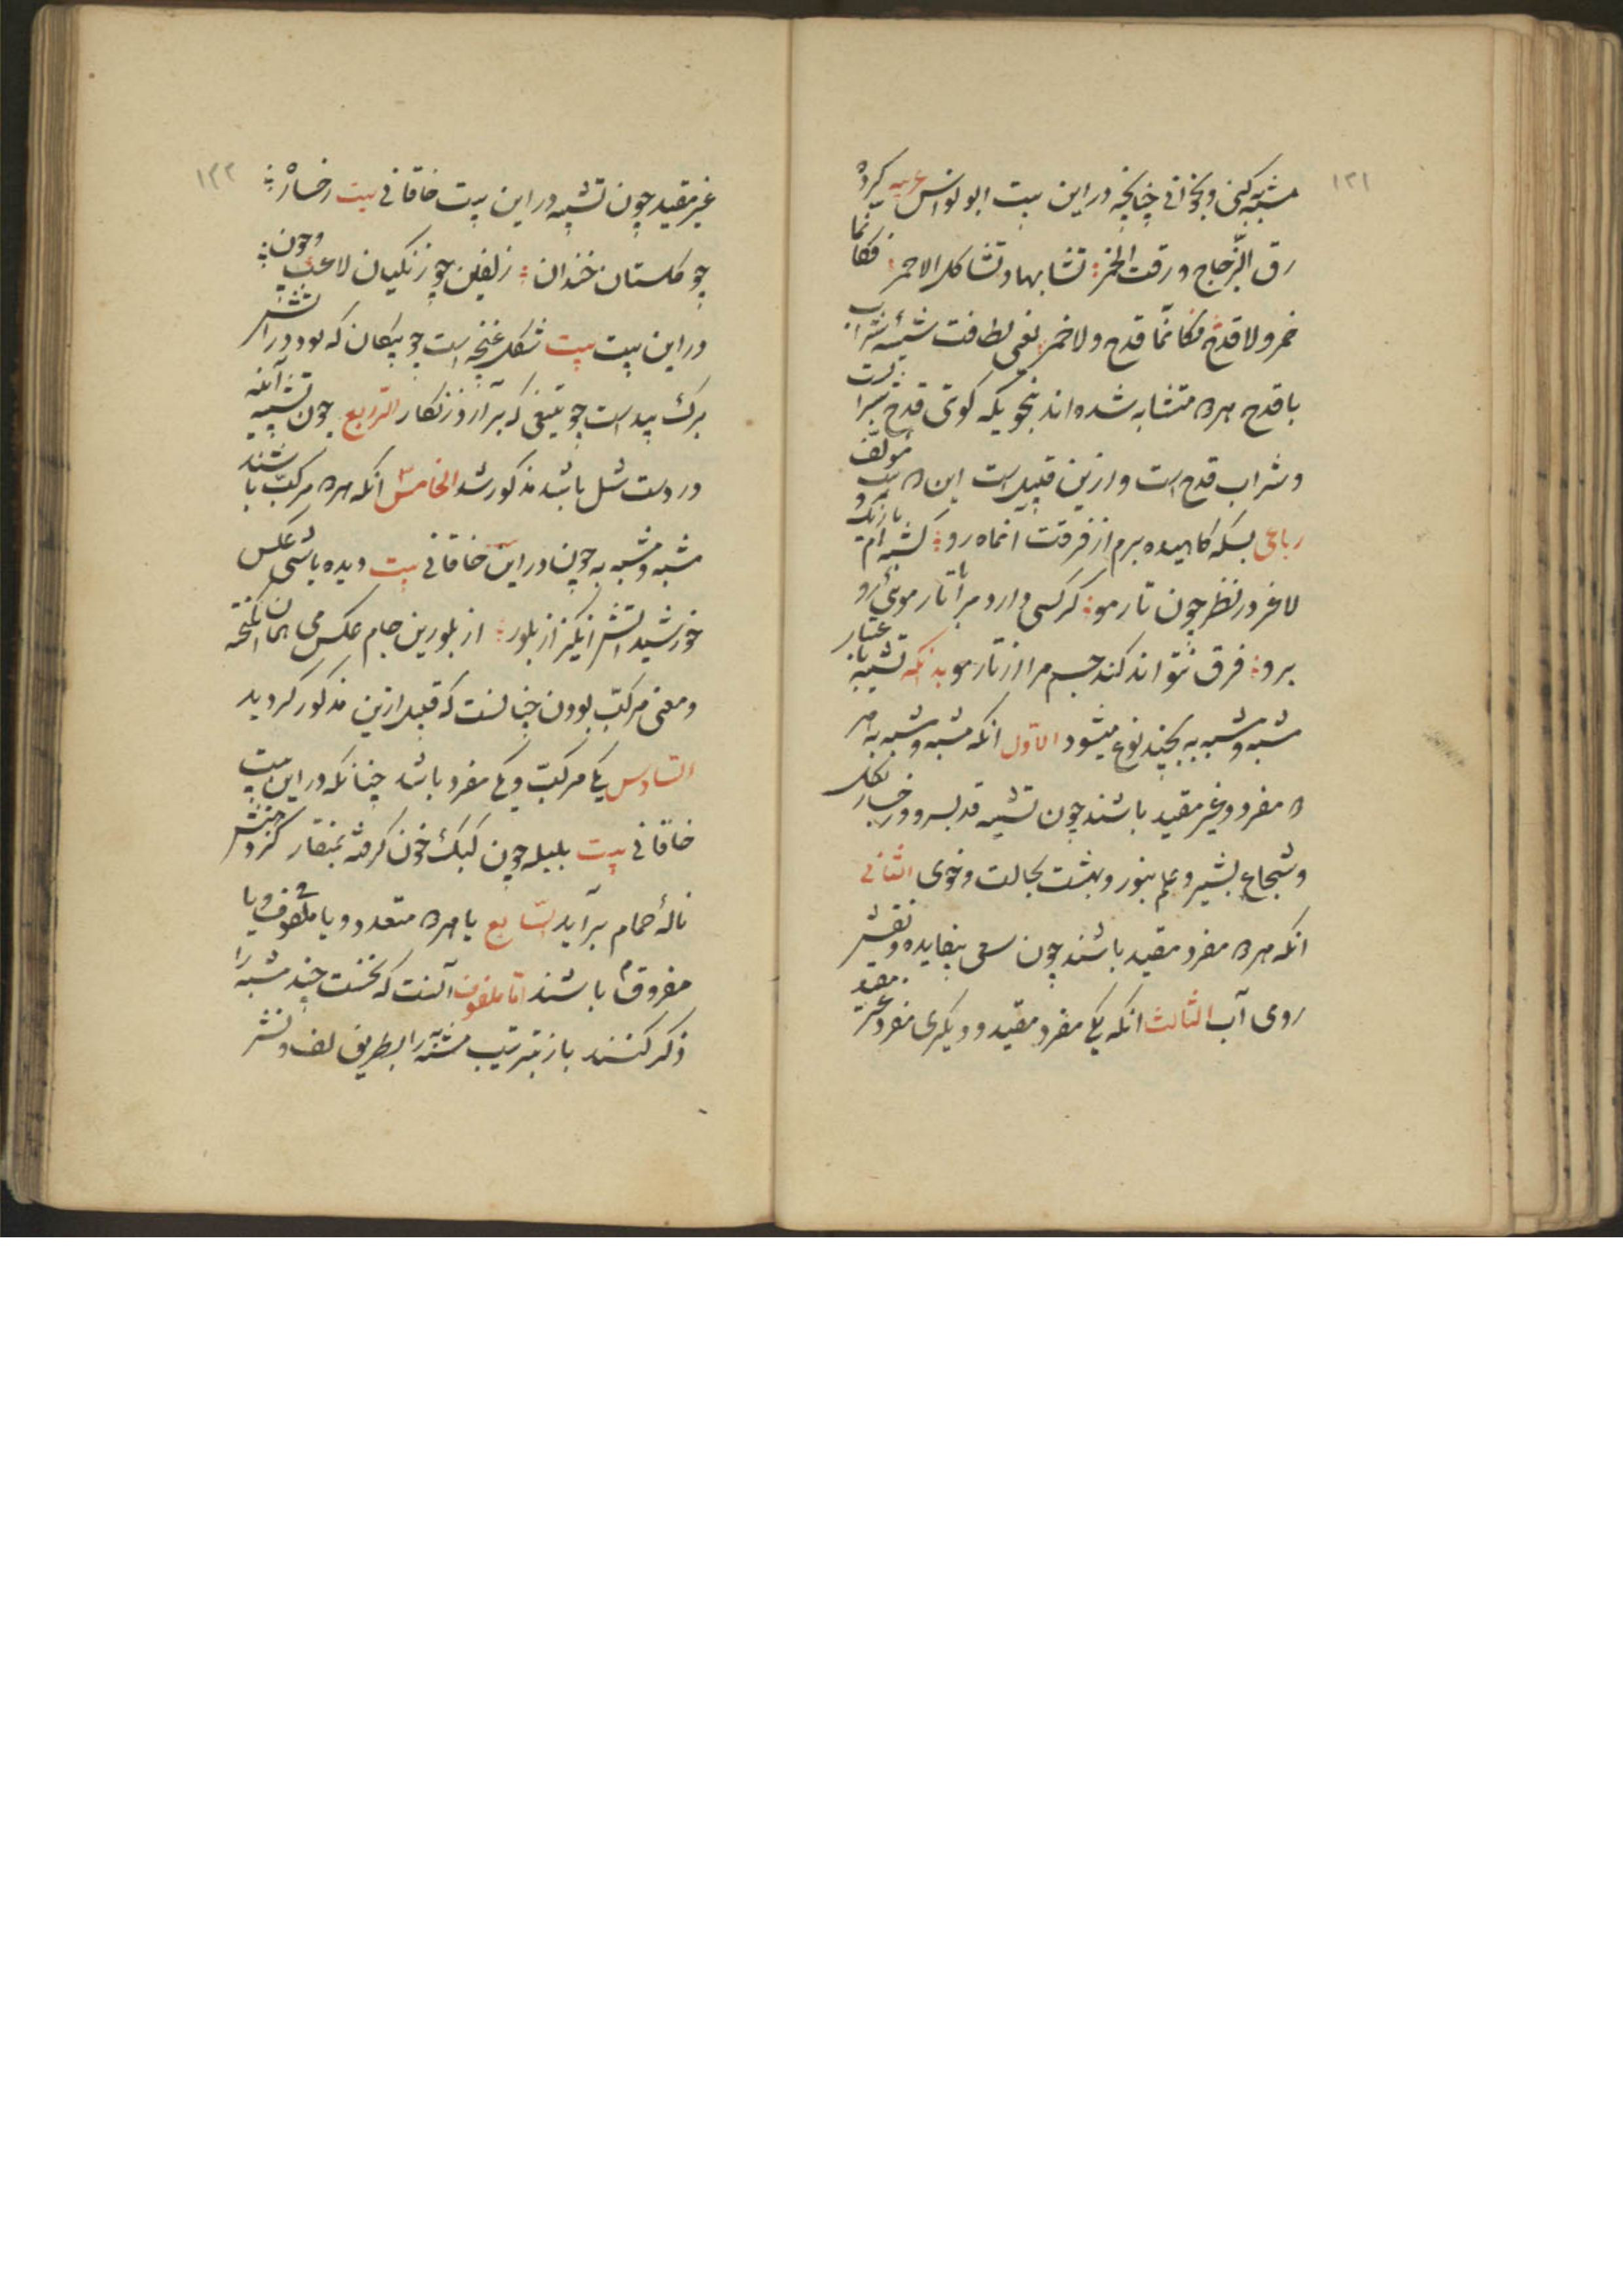 ۱۳۱
مشبه کنی و بخوانی چنانچه در این بیت ابو نواس عربیه کرده
رق الزّجاج و رقت الخمر تشابها و تشاکل الامر فکانما
خمر ولا قدح فکانّما قدح ولا خمر یعنی لطافت شیشه شراب
با قدح هر دو متشابه شده اند بنحویکه کوئی قدح شرابست
و شراب قدح است و ازین قبیل است این دو بیت مؤلف
رباعی بسکه کاهیده برم از فرقت انماه رو کشته ام باریک و
لاغر در نظر چون تار مو کر کسی دارد مرا با تار موئی رو
برو فرق نتواند کند جسم مرا از تار مو بدانکه تشبیه باعتبار
مشبه و مشبه به بچند نوع میشود الاوّل انکه مشبه و مشبه به هر
دو مفرد و غیر مقید باشند چون تشبیه قد بسرو و رخسار بکل
و شجاع بشیر و علم بنور و بهشت بجالت و خوی الثانی
انکه هر دو مفرد مقید باشند چون سعی بیفایده و نقش
روی آب الثالث انکه یکی مفرد مقید و دیکری مفرد غیر مقید
۱۳۲
غیر مقید چون تشبیه در این بیت خاقانی بیت رخساره
چو کلستان خندان زلفین چو زنکیان لاعب و چون
در این بیت بیت شکل غنچه است چو پیکان که بود در آتش
برک بید است چو تیغی که برآرد زنکار الرّابع چون تشبیه آینه
در دست شل باشد مذکور شد الخامس انکه هر دو مرکب باشند
مشبه و مشبه به چون در این بیت خاقانی بیت دیده باشی عکس
خورشید آتش انکیز از بلور از بلورین جام عکس می همان انکیخته
و معنی مرکب بودن چنانست که قبل ازین مذکور کردید
السّادس یکی مرکبّ و یکی مفرد باشد چنانکه در این بیت
خاقانی بیت بلبله چون کبک خون کرفته بمنقار کز دهنش
نالهٔ حمام برآید السّابع یا هر دو متعدد و یا ملفوف و یا
مفروق باشند امّا ملفوف آنست که نخست چند مشبه را
ذکر کنند باز بترتیب مشبّه به را بطریق لف و نشر